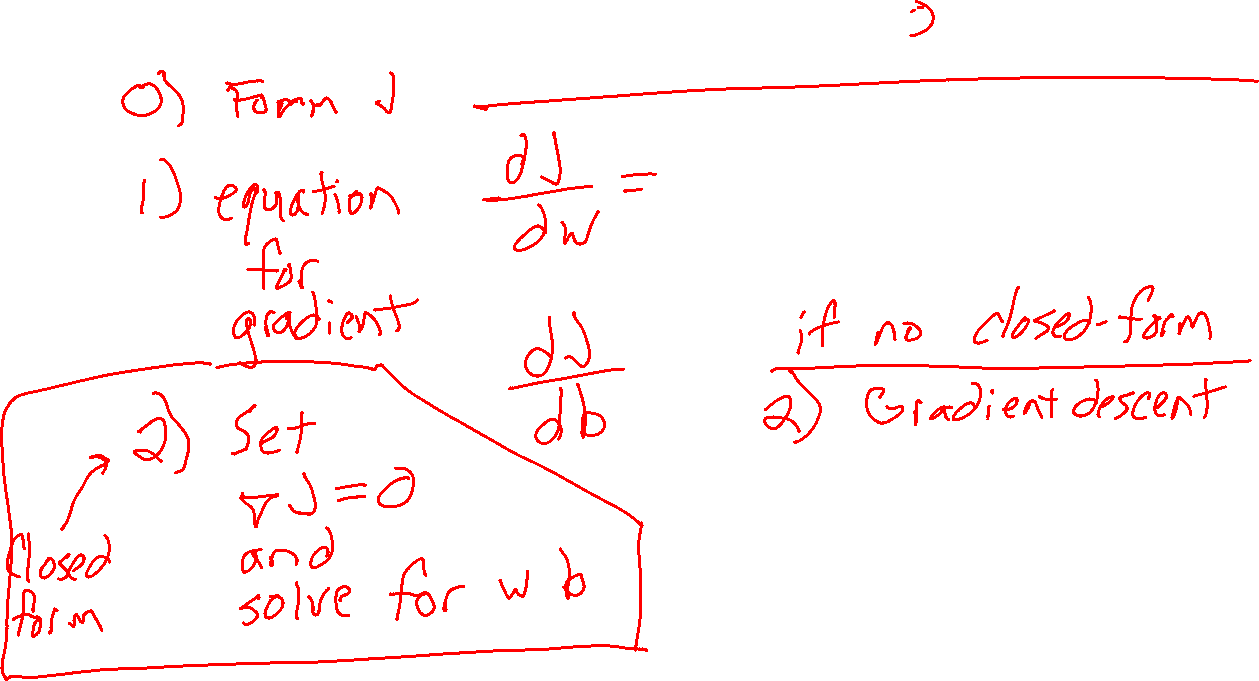 0) Form J
1) equation
for
gradient
dJ/dw =
dJ/db
2) Set
∇J = 0
and
solve for w b
Closed
form
if no closed-form
2) Gradient descent